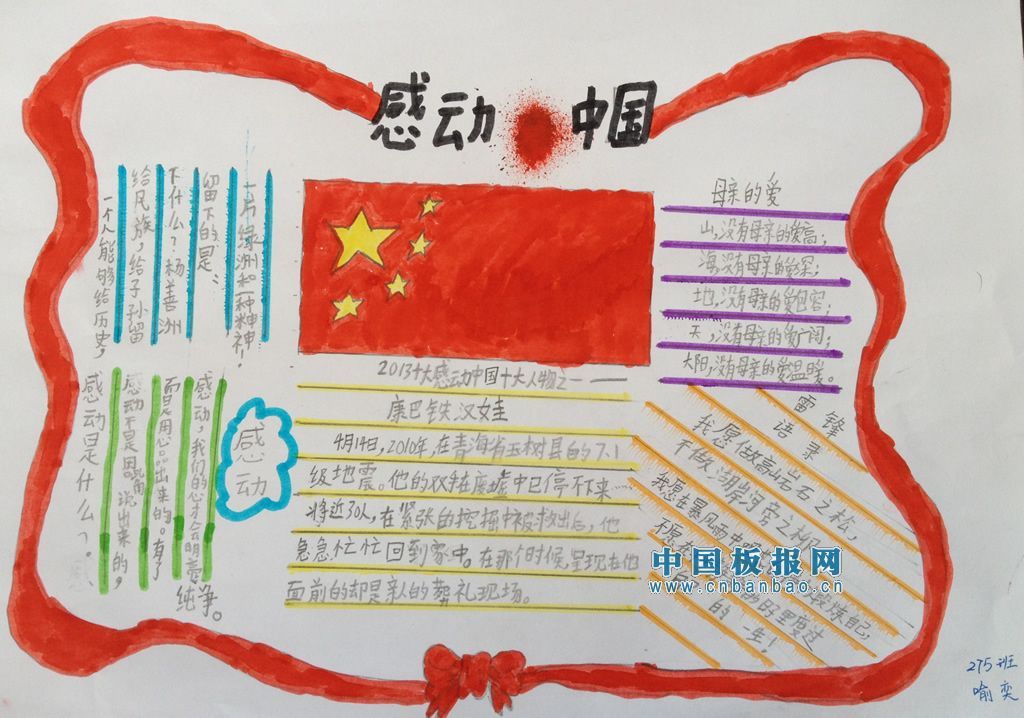 感动 中国
一个人能够给历史，
给民族，给子孙留
下什么？杨善洲
留下的是：
一片绿洲和一种精神！
感动是什么？
感动不是用嘴说出来的，
而是用心品出来的。有了
感动，我们的心才会明亮
纯净。
感动
2013十大感动中国十大人物之一——
康巴铁汉娃
4月14日，2010年，在青海省玉树县的7.1
级地震。他的双手在废墟中已停不下来
将近30人，在紧张的挖掘中被救出后，他
急急忙忙回到家中。在那个时候，呈现在他
面前的却是亲人的葬礼现场。
母亲的爱
山，没有母亲的爱高；
海，没有母亲的爱深；
地，没有母亲的爱包容；
天，没有母亲的爱广阔；
太阳，没有母亲的爱温暖。
雷锋
语录
我愿做高山岩石之松，
不做湖岸河旁之柳。
我愿在暴风雨中
锻炼自己，
不愿在
的日子里度过
的一生！
中国板报网
www.cnbanbao.cn
275班
喻奕